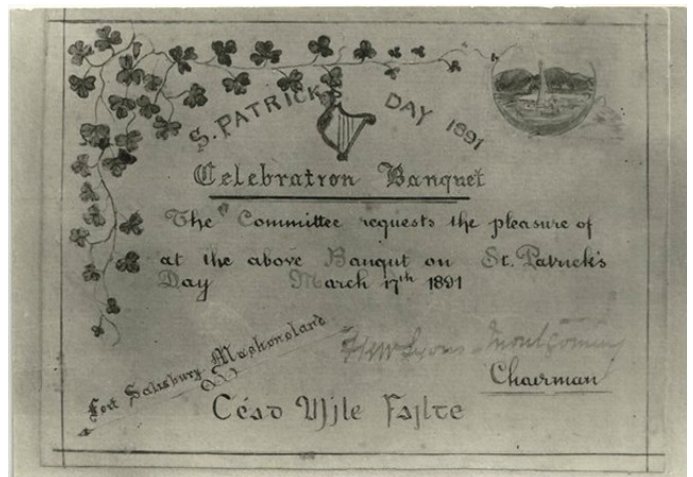 S. PATRICK'S DAY 1891
Celebration Banquet
The Committee requests the pleasure of
at the above Banqut on St. Patrick's
Day March 17th 1891
Fort Salisbury Mashonaland
Montgomery
Chairman
Céad Mjle Fajlte